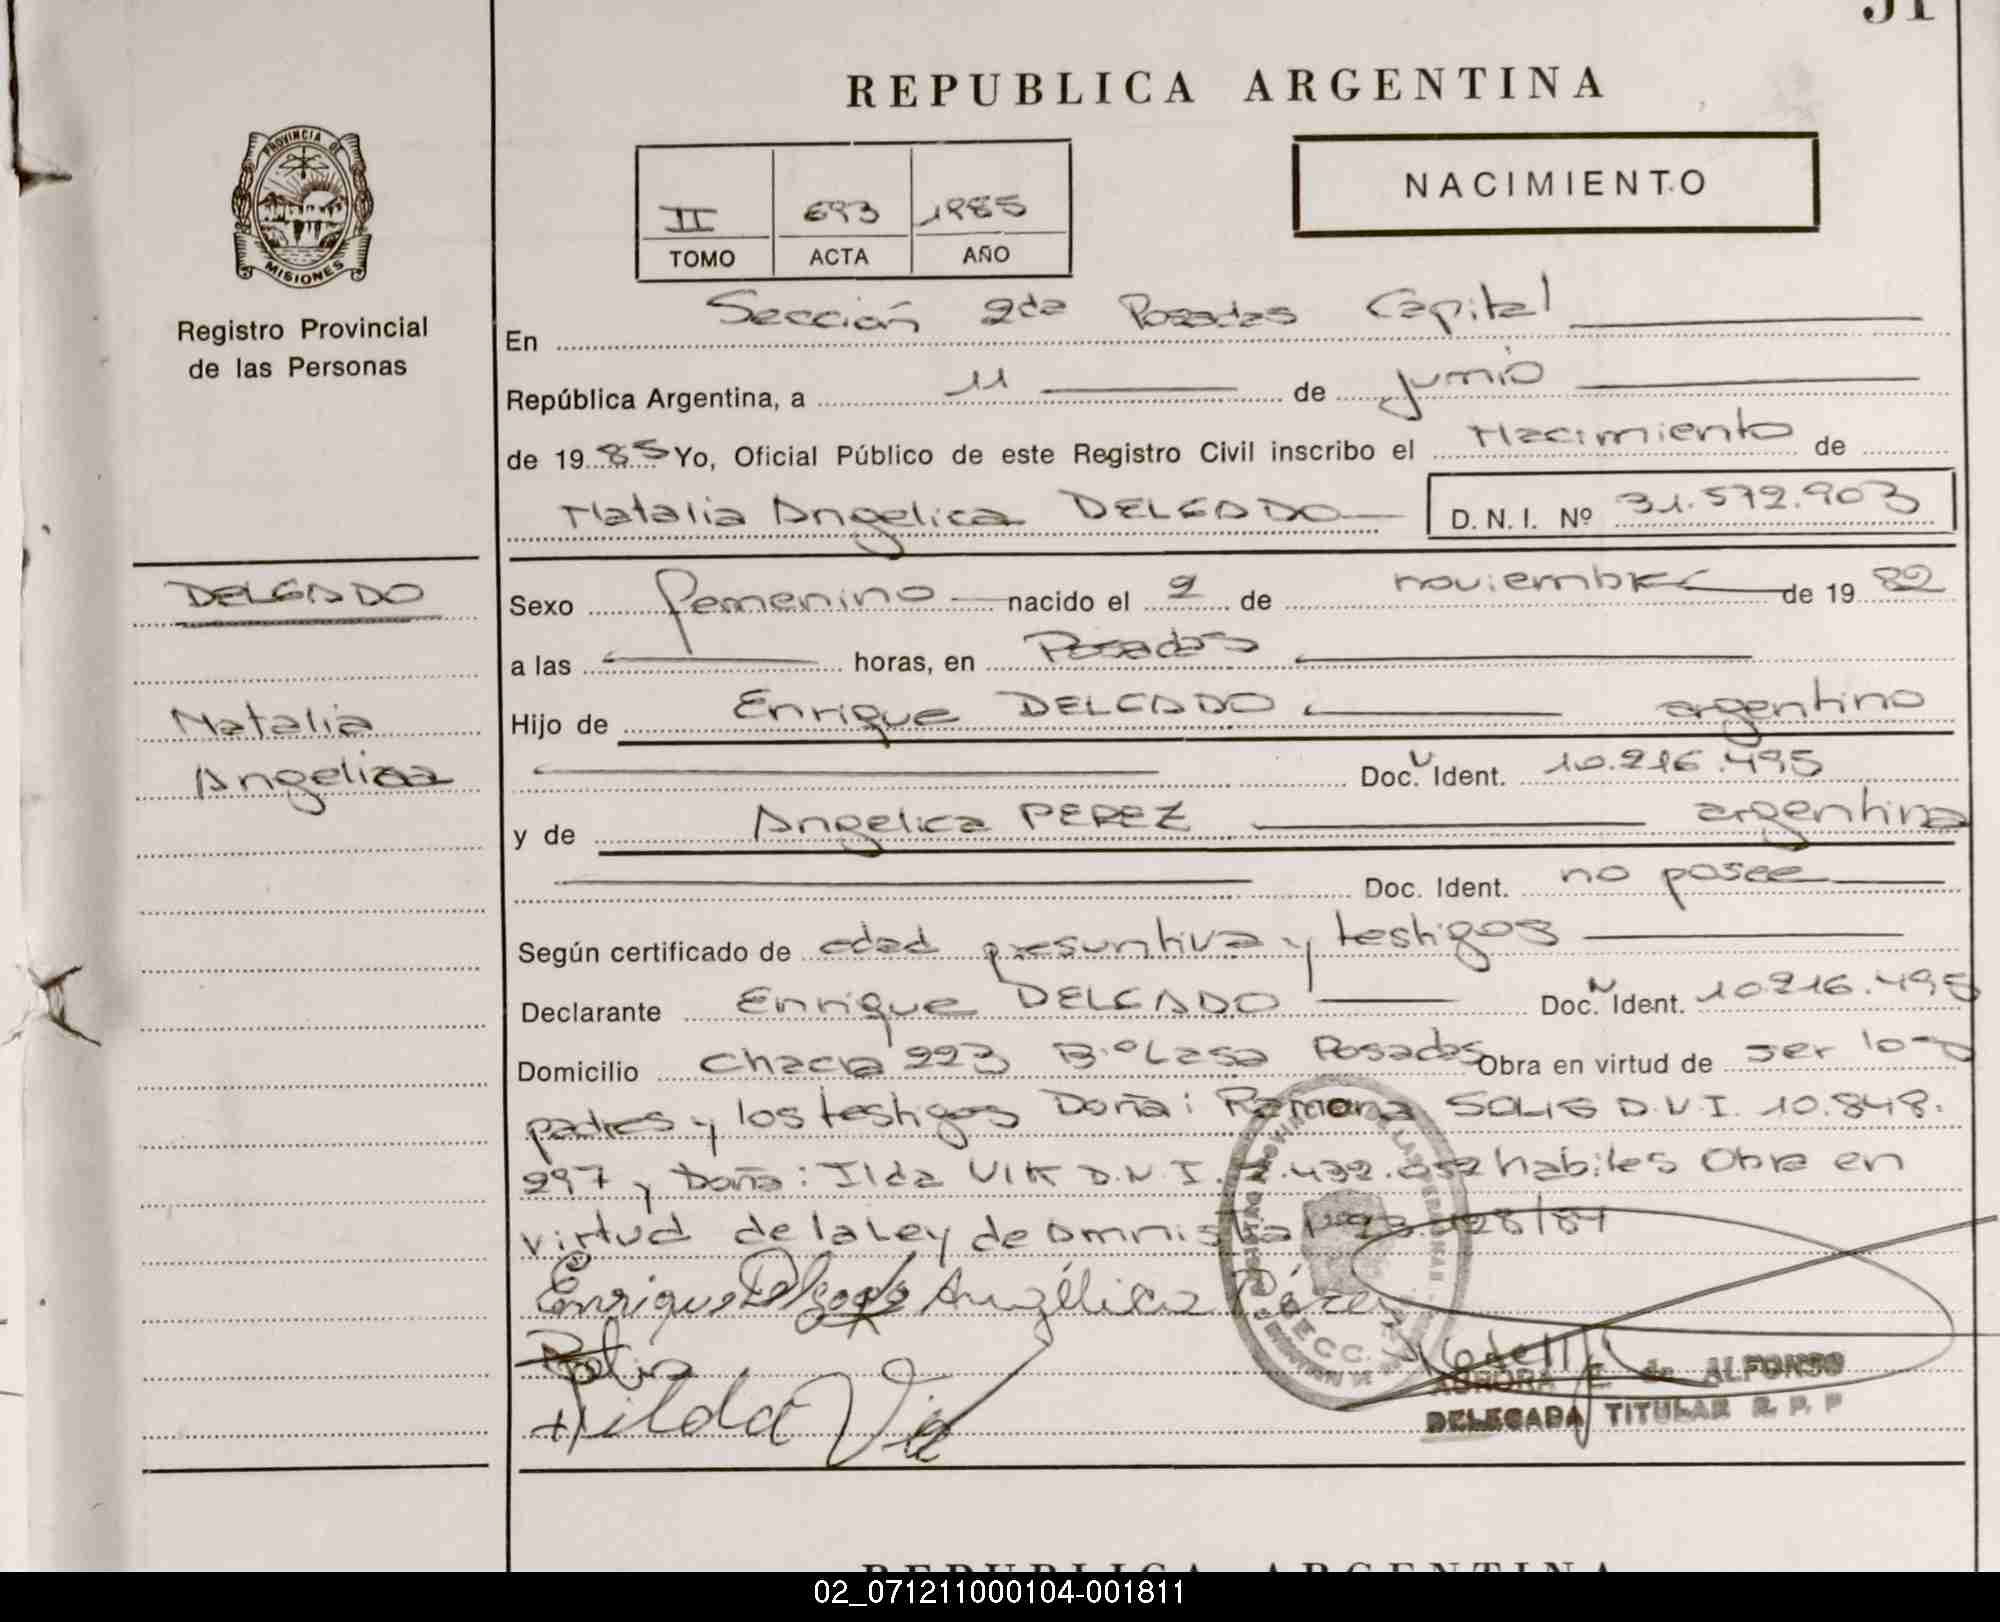 31
REPUBLICA ARGENTINA
PROVINCIA DE
MISIONES
Registro Provincial
de las Personas
II 693 1985
TOMO ACTA AÑO
NACIMIENTO
En Sección 2da Posadas Capital
República Argentina, a 11 de junio
de 1985 Yo, Oficial Público de este Registro Civil inscribo el Nacimiento de
Natalia Angelica DELGADO D.N.I. Nº 31.572.903
DELGADO
Natalia
Angelica
Sexo femenino nacido el 2 de noviembre de 1982
a las horas, en Posadas
Hijo de Enrique DELGADO argentino
Doc. Ident. 10.216.495
y de Angelica PEREZ argentina
Doc. Ident. no posee
Según certificado de edad presuntiva y testigos
Declarante Enrique DELGADO Doc. Ident. 10.216.495
Domicilio Chacra 223 B.º Lasa Posadas Obra en virtud de ser los
padres y los testigos Doña: Ramona SOLIS D.N.I. 10.848.
297 y Doña: Ilda VIK D.N.I. habiles Obra en
virtud de la Ley de amnistia
Enrique Delgado Angélica Pérez
Hilda Vik
SECC.
AURORA E de ALFONSO
DELEGADA TITULAR R. P. P
REPUBLICA ARGENTINA
02_071211000104-001811